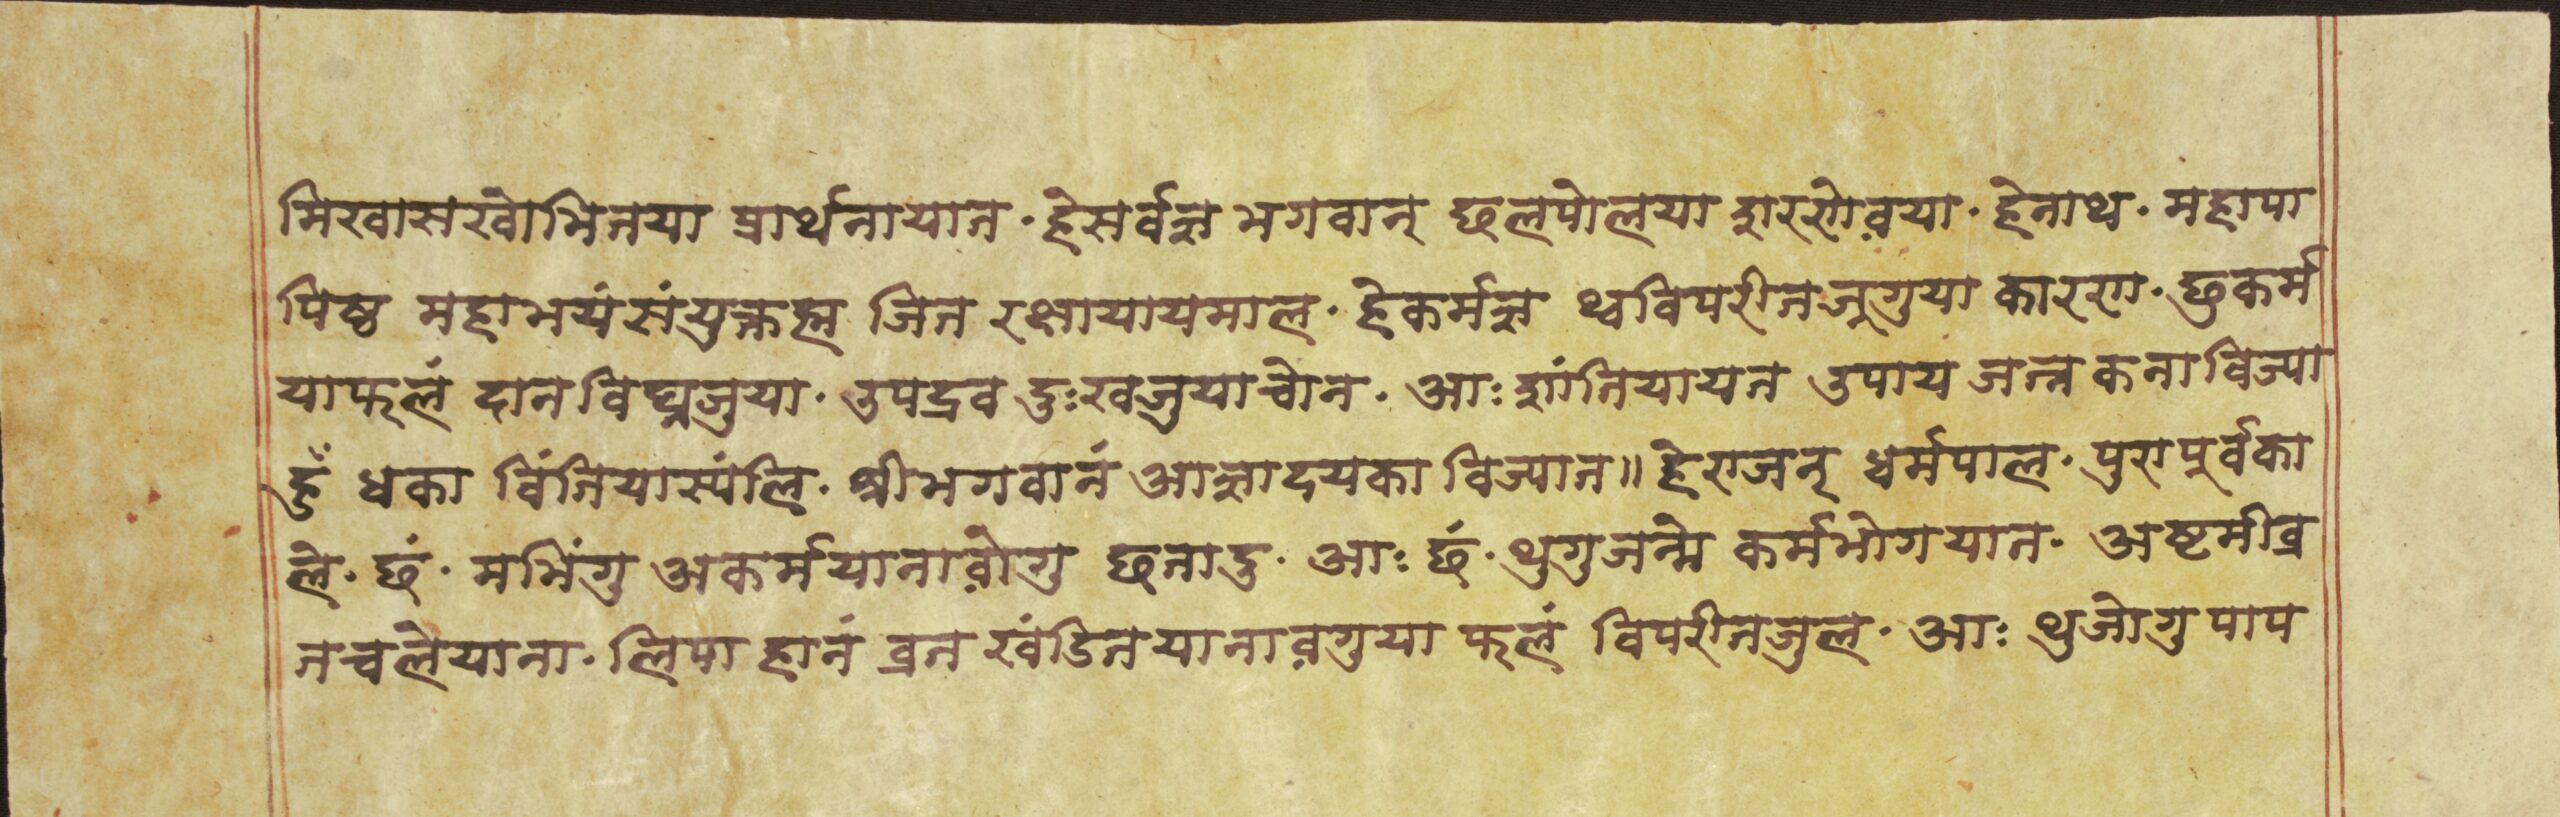 मिखासखोभिनया प्रार्थनायात· हेसर्वज्ञ भगवान् छलपोलया शरणोव़या· हेनाथ· महापा
पिष्ठ महाभयंसंयुक्तह्म जित रक्षायायमाल· हेकर्मज्ञ थ्वविपरीतजूगुया कारण· छुकर्म
याफलं दानविघ्नजुया· उपद्रव दुःखजुयाच्चोन· आः शांतियायत उपाय जन्त कनाविज्या
हुँ धका विंतियास्यंलि· श्रीभगवानं आज्ञादयका विज्यात॥ हेराजन् धर्मपाल· पुरापूर्वका
ले· छं· मभिंगु अकर्मयानाव़ोगु छनादु· आः छं· थुगुजन्मे कर्मभोगयात· अष्टमीव्र
तचलेयाना· लिपा हानं व्रत खंडितयानाव़गुया फलं विपरीतजुल· आः थुजोगु पाप